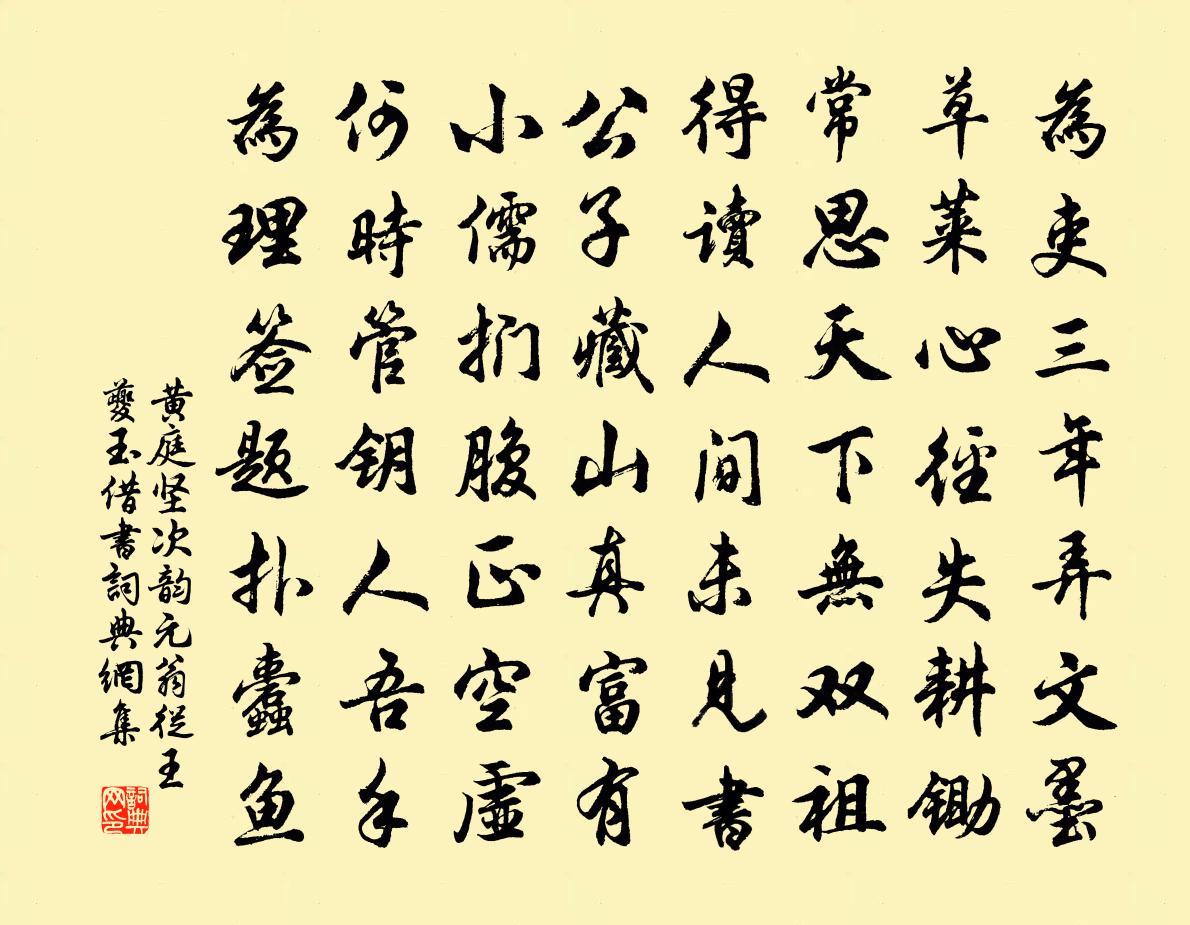 為吏三年弄文墨
草萊心徑失耕鋤
常思天下無双祖
得讀人間未見書
公子藏山真富有
小儒捫腹正空虛
何時管钥人吾手
為理签题扑蠹鱼
黄庭坚次韵元翁從王
夔玉借書詞典網集
詞典网印